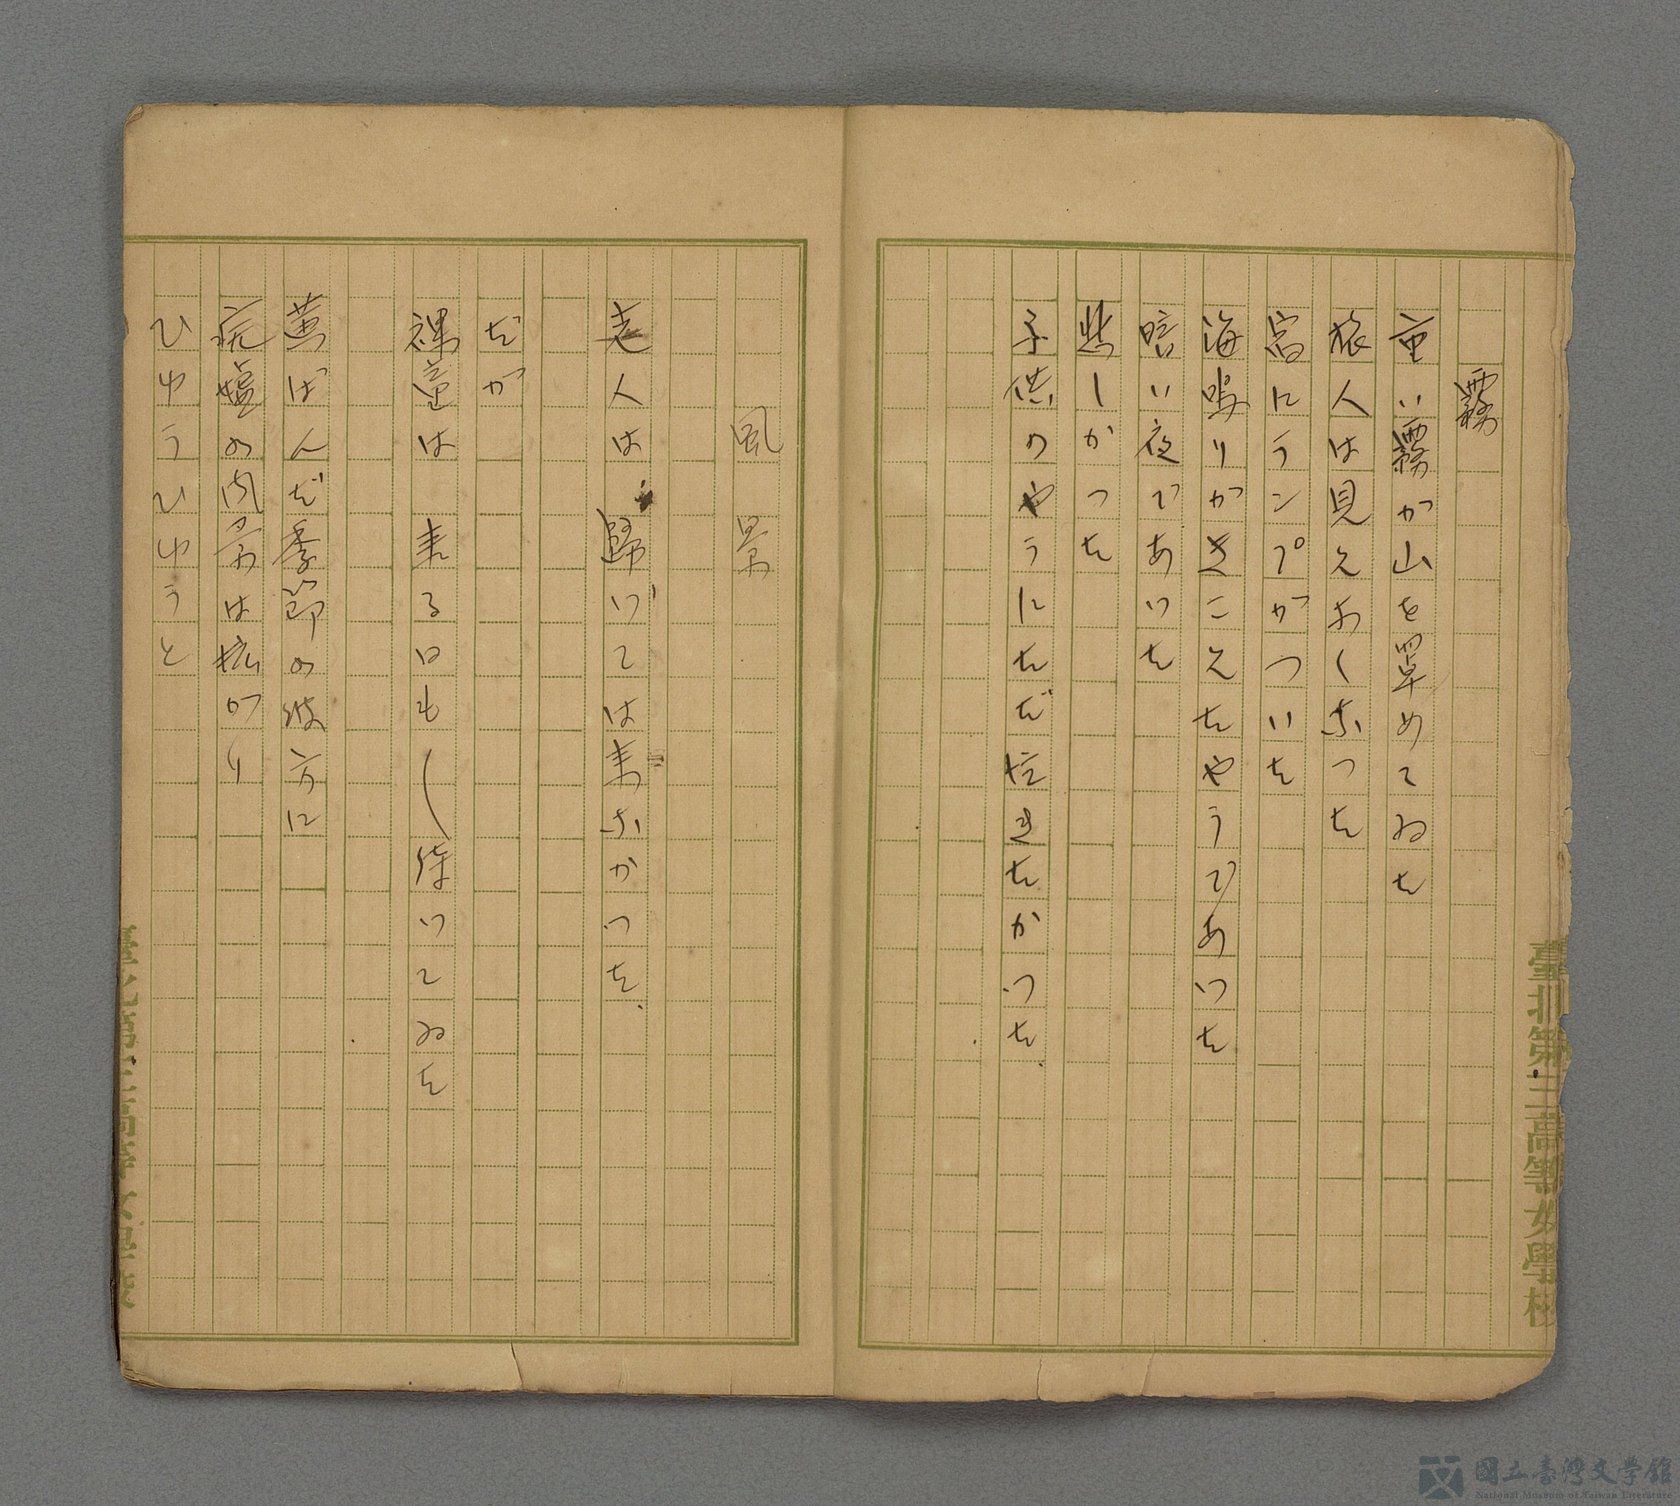 霧
重い霧が山を罩めてゐた
旅人は見えなくなつた
窓にランプがついた
海鳴りがきこえたやうであつた
暗い夜であつた
悲しかつた
子供のやうにたゞ泣きたかつた.
臺北第三高等女學校
風景
老人は 歸つては来なかつた.
だが
裸童は 来る日も〱待つてゐた
黄ばんだ季節の彼方に
廃墟の肉景は拡がり
ひゆうひゆうと
國立臺灣文學館
National Museum of Taiwan Literature